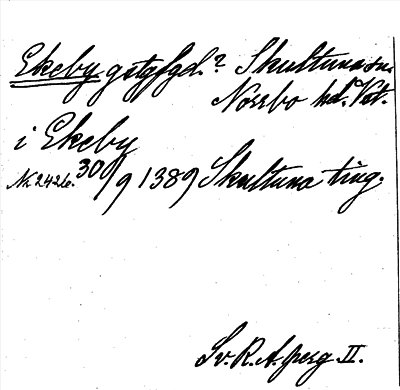 Ekeby gstgfgd.? Skultuna sn.
Norrbo hd. Vst.
i Ekeby
Nr. 2426. 30/9 1389 Skultuna ting.
Sv. R. A. perg. II.